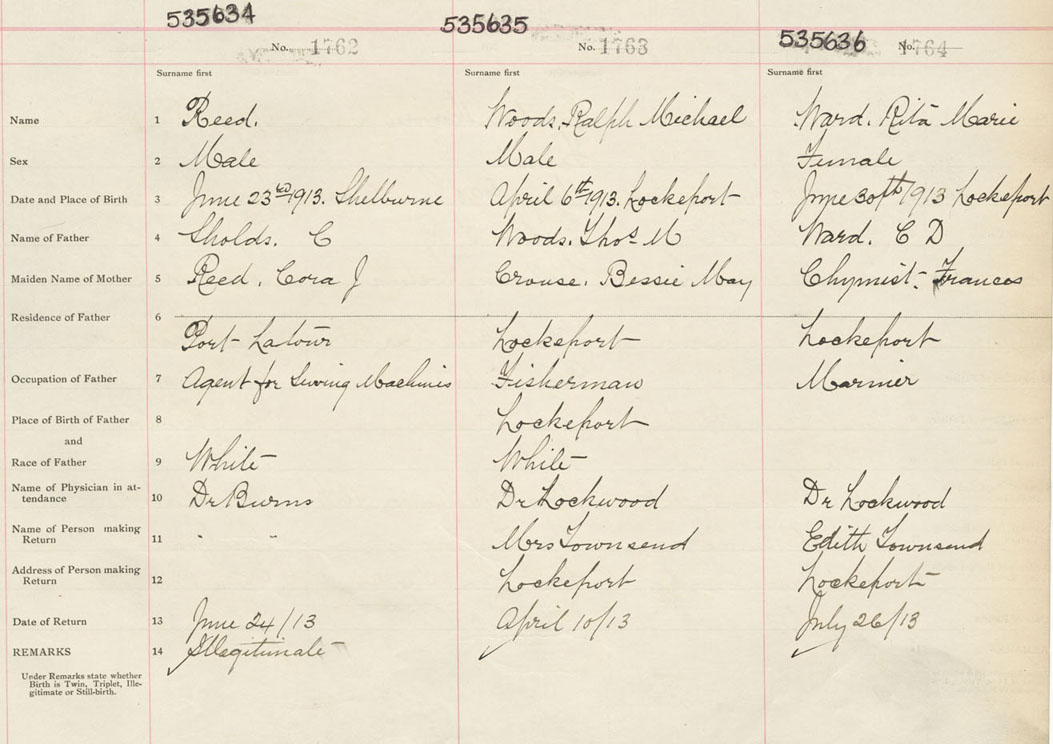 535634 535635 535636
No. 1762 No. 1763 No. 1764
Surname first Surname first Surname first
Name 1 Reed. Woods. Ralph Michael Ward. Rita Marie
Sex 2 Male Male Female
Date and Place of Birth 3 June 23rd 1913. Shelburne April 6th 1913. Lockeport June 30th 1913 Lockeport
Name of Father 4 Sholds. C Woods. Thos M Ward. C D
Maiden Name of Mother 5 Reed. Cora J Crouse. Bessie May Chymist. Frances
Residence of Father 6
Port Latour Lockeport Lockeport
Occupation of Father 7 Agent for Sewing Machines Fisherman Mariner
Place of Birth of Father 8 Lockeport
and
Race of Father 9 White White
Name of Physician in at-
tendance 10 Dr Burns Dr Lockwood Dr Lockwood
Name of Person making
Return 11 " " Mrs Townsend Edith Townsend
Address of Person making
Return 12 Lockeport Lockeport
Date of Return 13 June 24/13 April 10/13 July 26/13
REMARKS 14 Illegitimate
Under Remarks state whether
Birth is Twin, Triplet, Ille-
gitimate or Still-birth.